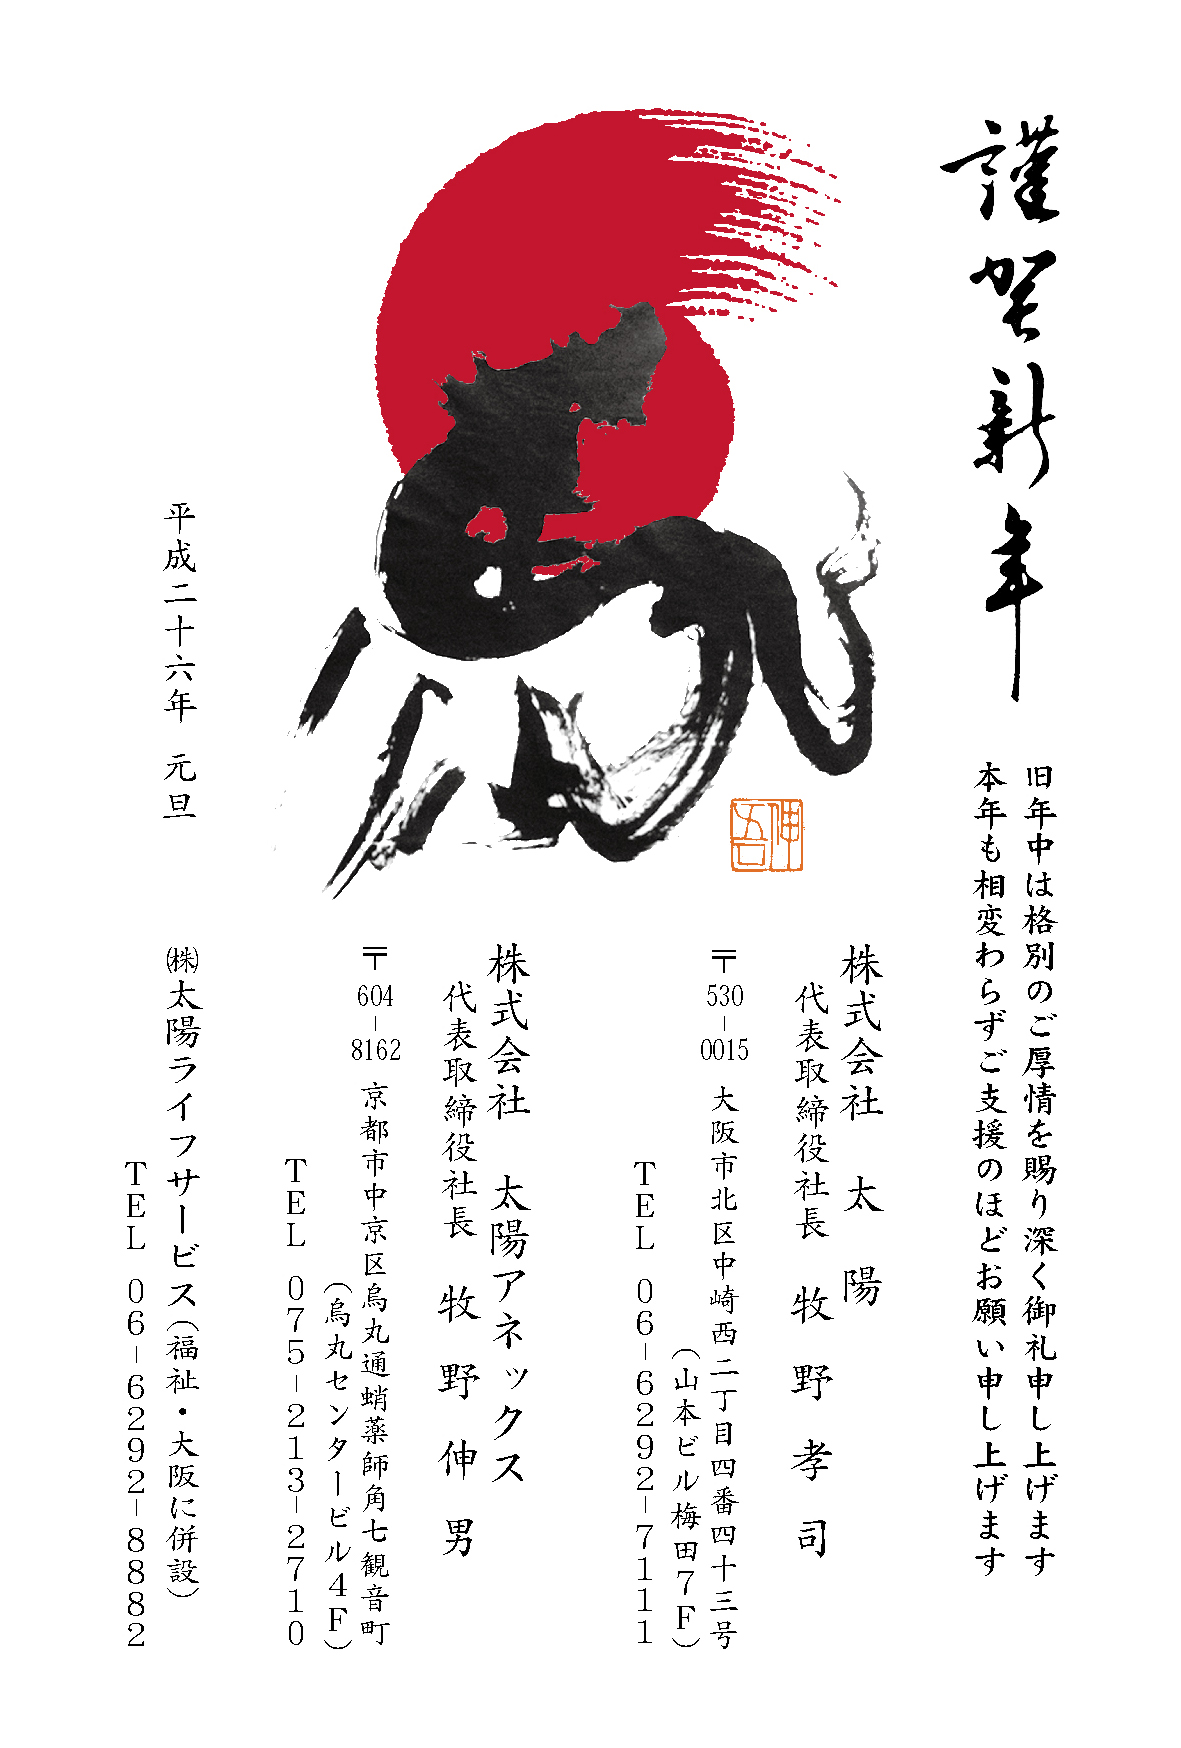 謹賀新年
旧年中は格別のご厚情を賜り深く御礼申し上げます
本年も相変わらずご支援のほどお願い申し上げます
株式会社 太陽
代表取締役社長 牧野孝司
〒530-0015 大阪市北区中崎西二丁目四番四十三号
(山本ビル梅田7F)
TEL 06-6292-7111
株式会社 太陽アネックス
代表取締役社長 牧野伸男
〒604-8162 京都市中京区烏丸通蛸薬師角七観音町
(烏丸センタービル4F)
TEL 075-213-2710
㈱太陽ライフサービス(福祉・大阪に併設)
TEL 06-6292-8882
平成二十六年 元旦
伸吾